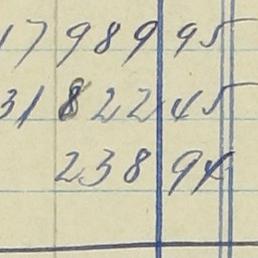 17 989 95
31 822 45
238 94